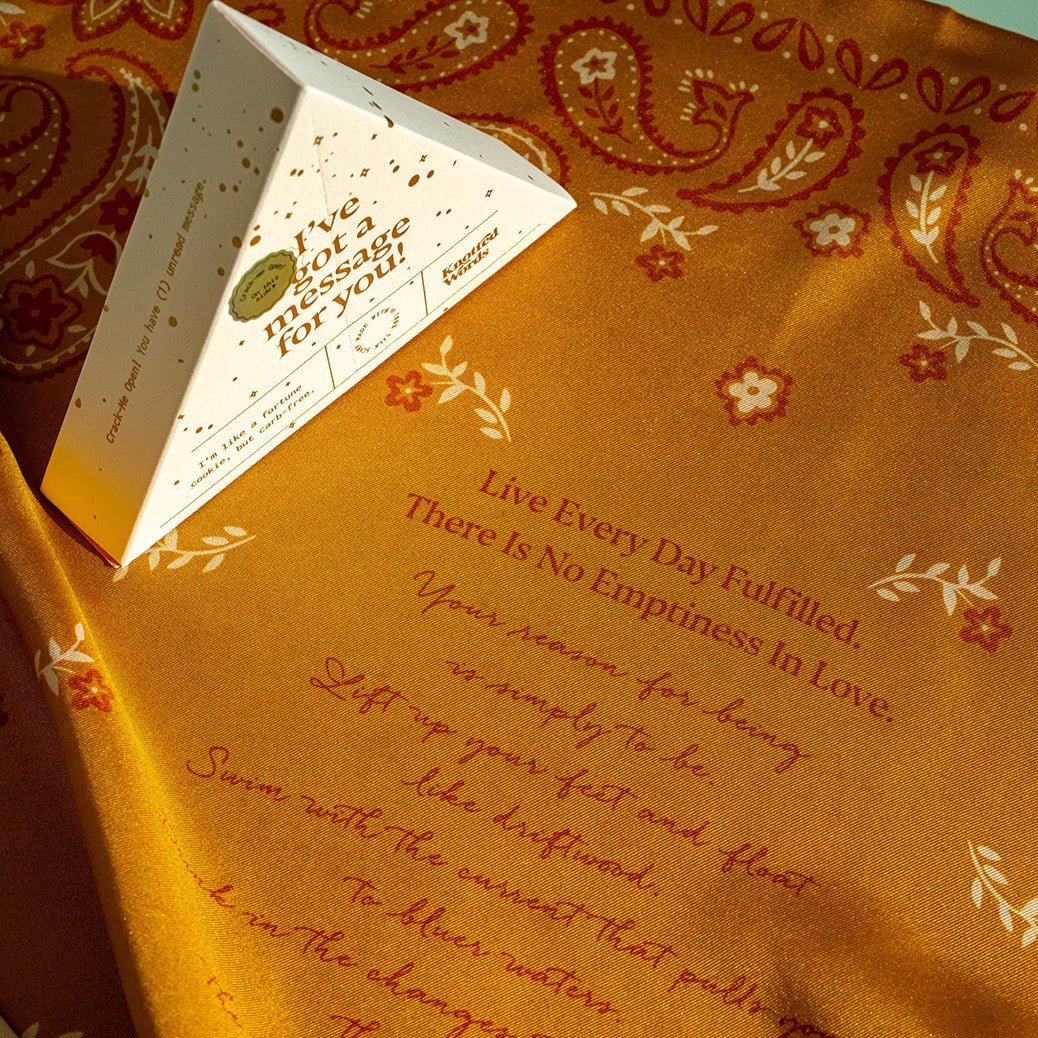 Crack-Me Open! You have (1) unread message.
I've
got a
message
for you!
Crack-me Open!
On this
side
Knotted
Words
I'm like a fortune
cookie, but carb-free.
Live Every Day Fulfilled.
There Is No Emptiness In Love.
Your reason for being
is simply to be.
Lift up your feet and float
like driftwood.
Swim with the current that pulls
To bluer waters.
in the changes